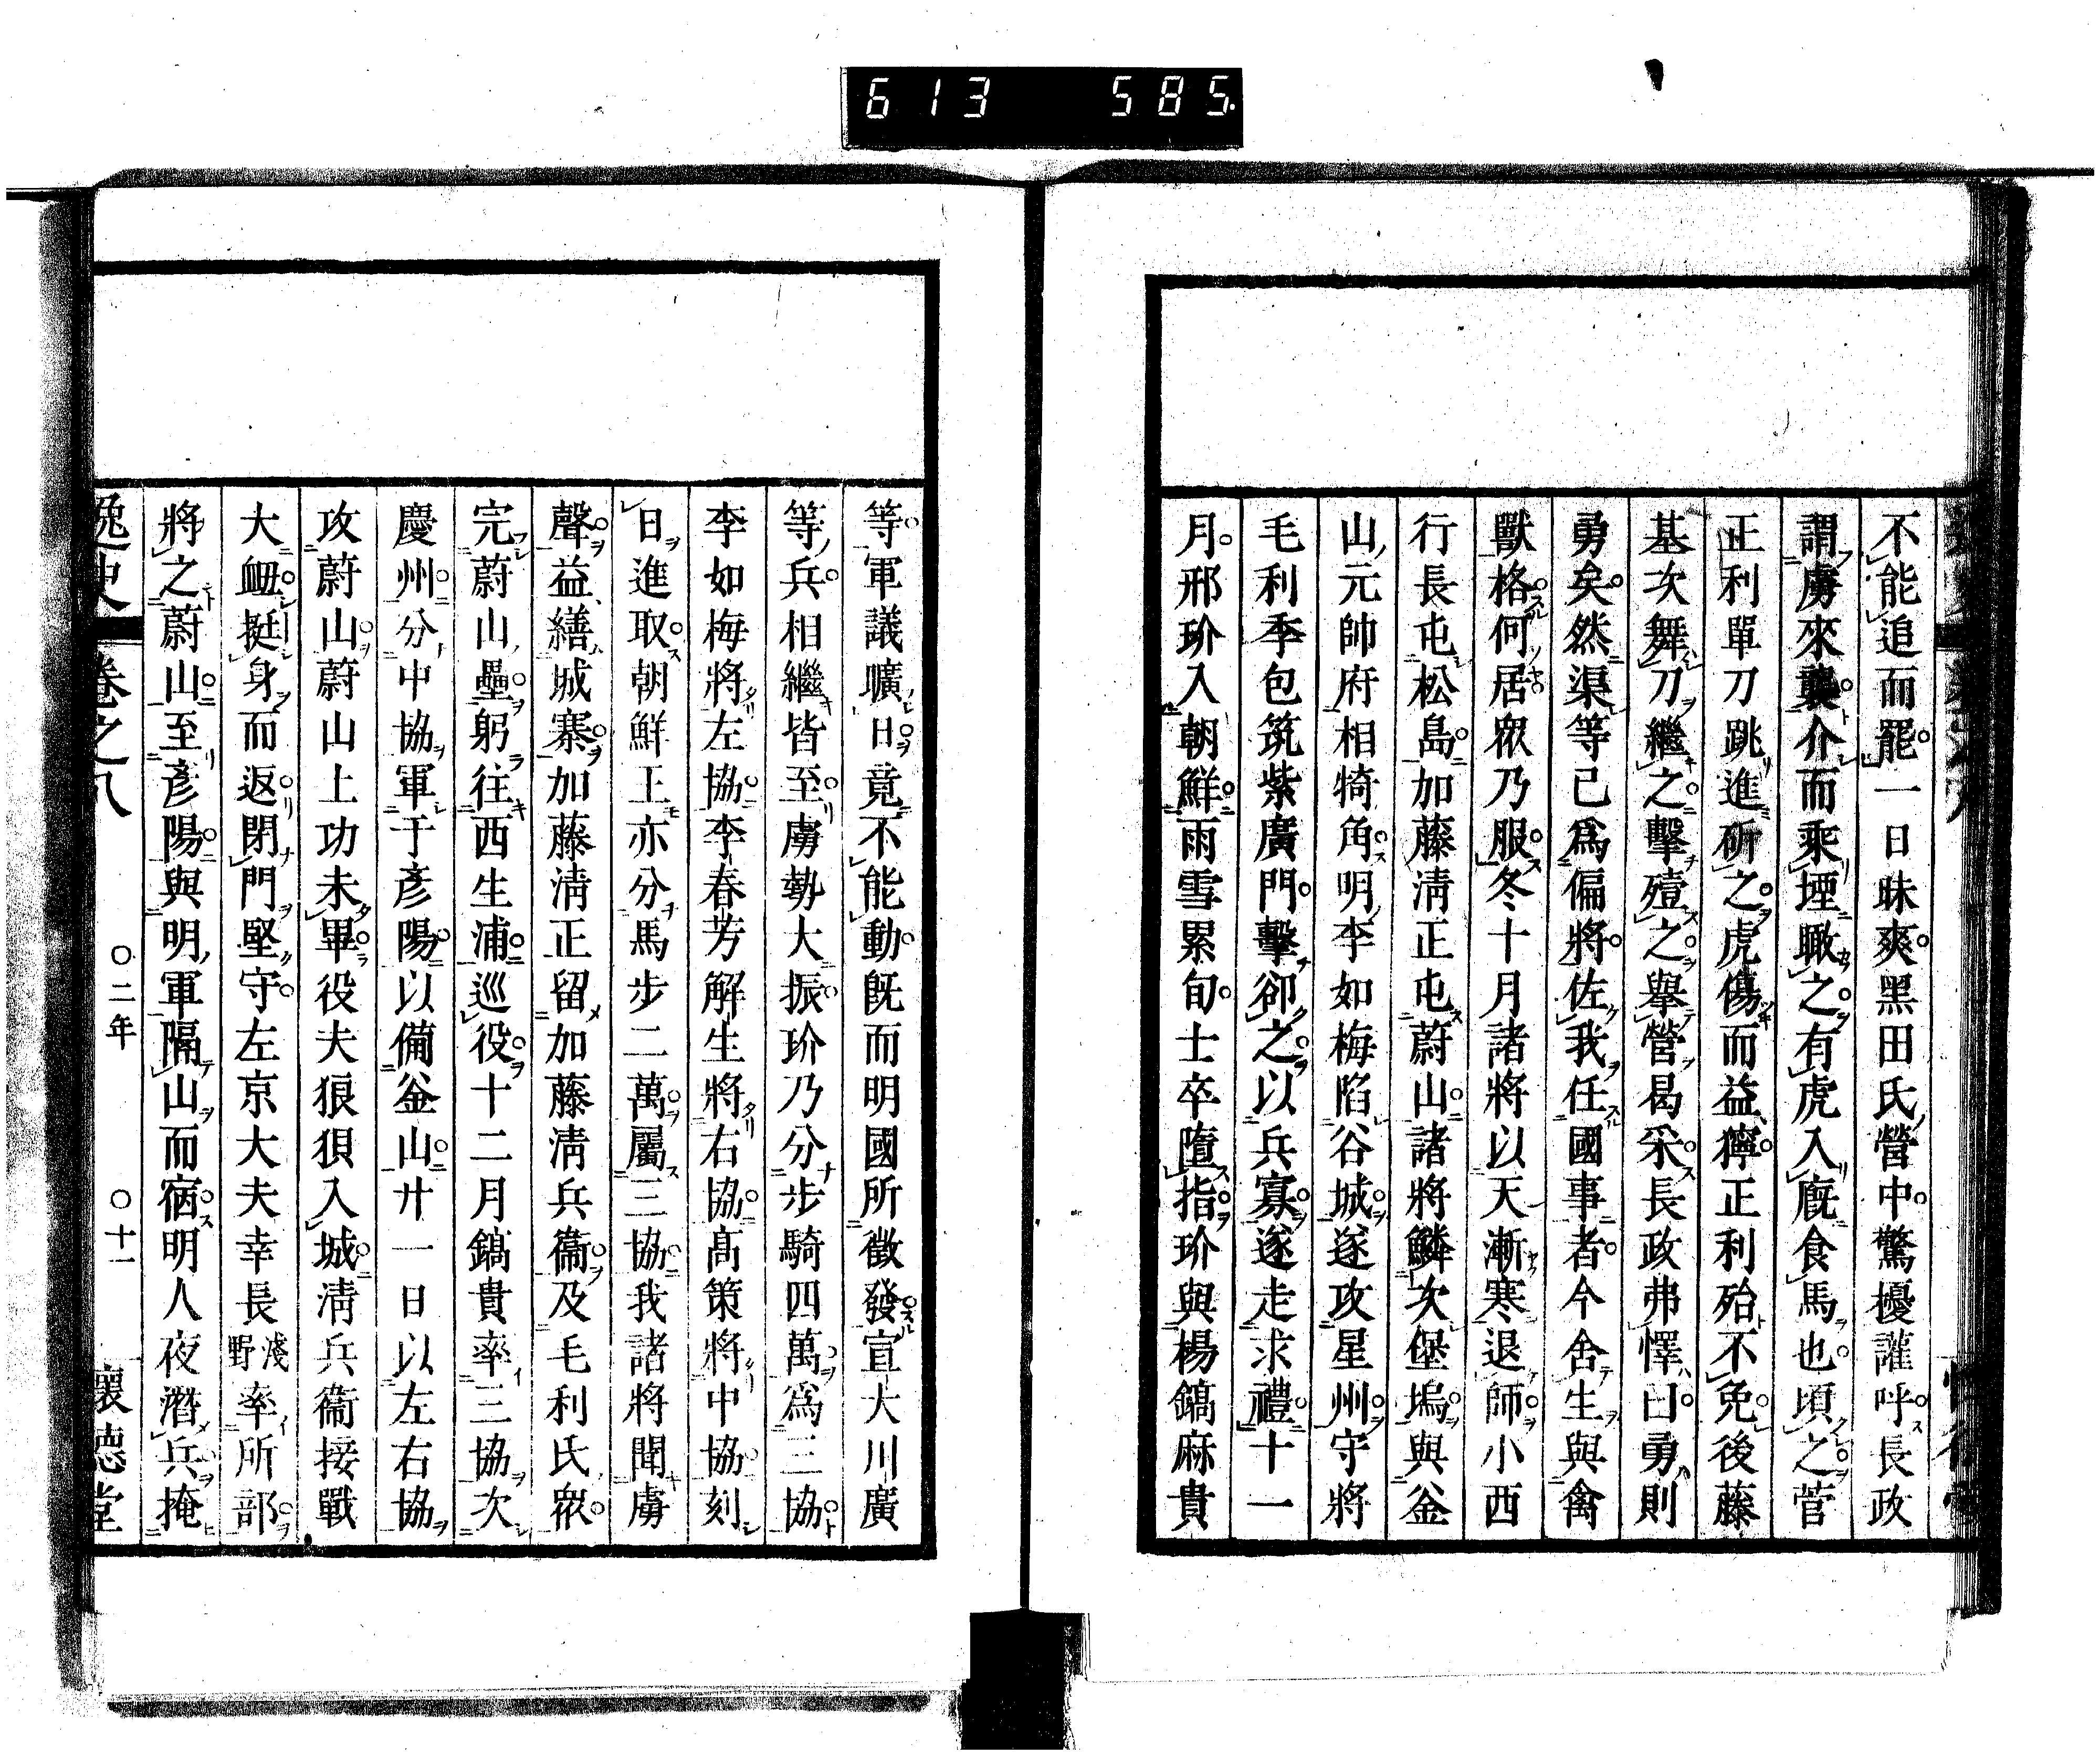 613 585
不能追而罷一日昧爽黑田氏營中驚擾讙呼長政
謂虜來襲介而乘堙瞰之有虎入廐食馬也頃之菅
正利單刀跳進斫之虎傷而益獰正利殆不免後藤
基次舞刀繼之擊殪之擧營曷采長政弗懌曰勇則
勇矣然渠等已爲偏將佐我任國事者今舍生與禽
獸格何居眾乃服冬十月諸將以天漸寒退師小西
行長屯松島加藤淸正屯蔚山諸將鱗次堡塢與釜
山元帥府相犄角明李如梅陷谷城遂攻星州守將
毛利季包筑紫廣門擊卻之以兵寡遂走求禮十一
月邢玠入朝鮮雨雪累旬士卒墮指玠與楊鎬麻貴
等軍議曠日竟不能動旣而明國所徵發宣大川廣
等兵相繼皆至虜勢大振玠乃分步騎四萬爲三協
李如梅將左協李春芳解生將右協高策將中協刻
日進取朝鮮王亦分馬步二萬屬三協我諸將聞虜
聲益繕城寨加藤淸正留加藤淸兵衞及毛利氏眾
完蔚山壘躬往西生浦巡役十二月鎬貴率三協次
慶州分中協軍于彥陽以備釜山廿一日以左右協
攻蔚山蔚山上功未畢役夫狼狽入城淸兵衞接戰
大衄挺身而返閉門堅守左京大夫幸長淺野率所部
將之蔚山至彥陽與明軍隔山而宿明人夜潛兵掩
逸史 卷之八 〇二年 〇十一 懷德堂